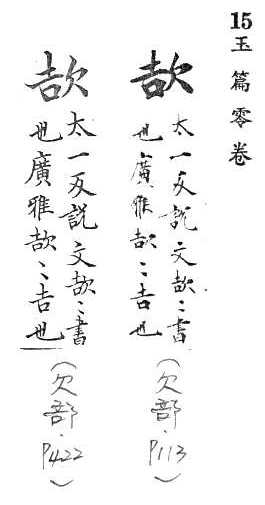 15 玉篇零卷
欯
太一反說文欯〻書
也廣雅欯〻吉也
(欠部·P113)
欯
太一反說文欯〻書
也廣雅欯〻吉也
(欠部·P422)